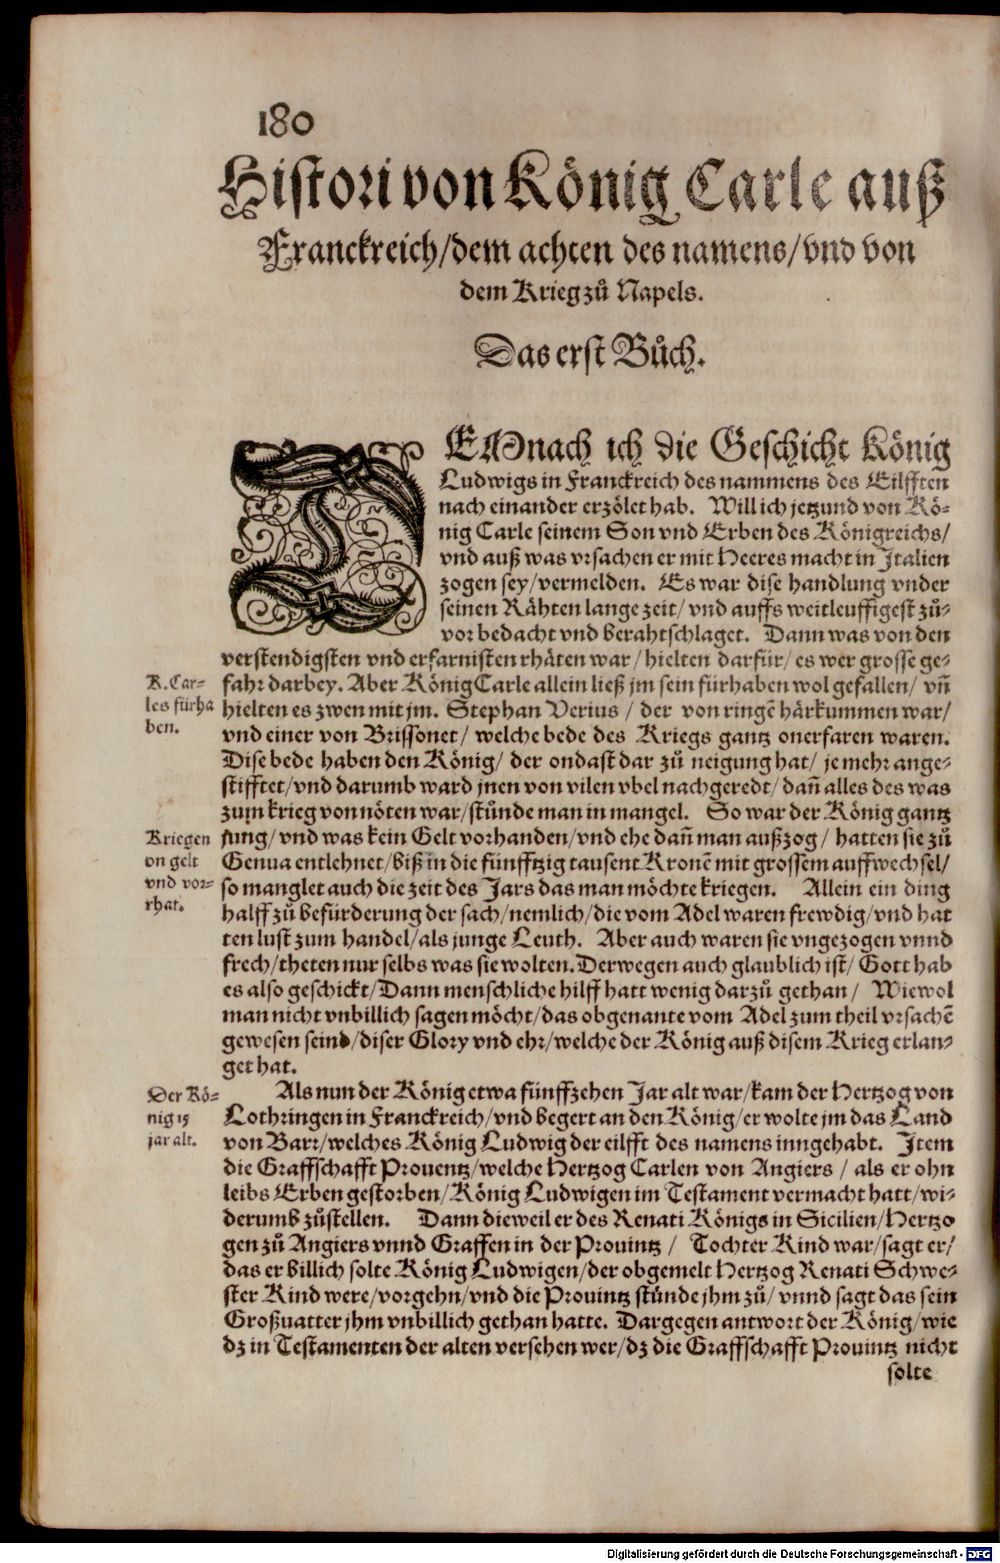 180
Histori von König Carle auß
Franckreich/dem achten des namens/vnd von
dem Krieg zů Napels.
Das erst Bůch.
DEMnach ich die Geschicht König
Ludwigs in Franckreich des nammens des Eilfften
nach einander erzölet hab. Will ich jetzund von Kö-
nig Carle seinem Son vnd Erben des Königreichs/
vnd auß was vrsachen er mit Heeres macht in Italien
zogen sey/vermelden. Es war dise handlung vnder
seinen Rähten lange zeit/ vnd auffs weitleuffigest zů-
vor bedacht vnd berahtschlaget. Dann was von den
verstendigsten vnd erfarnisten rhäten war/hielten darfür/ es wer grosse ge-
K. Car-
les fürha
ben.
fahr darbey. Aber König Carle allein ließ jm sein fürhaben wol gefallen/ vñ
hielten es zwen mit jm. Stephan Verius / der von ringē härkummen war/
vnd einer von Brissonet/ welche bede des Kriegs gantz onerfaren waren.
Dise bede haben den König/ der ondast dar zů neigung hat/ je mehr ange-
stifftet/vnd darumb ward jnen von vilen vbel nachgeredt/dañ alles des was
zum krieg von nöten war/stůnde man in mangel. So war der König gantz
Kriegen
on gelt
vnd vor-
rhat.
jung/vnd was kein Gelt vorhanden/vnd ehe dañ man außzog/ hatten sie zů
Genua entlehnet/biß in die fünfftzig tausent Kronē mit grossem auffwechsel/
so manglet auch die zeit des Jars das man möchte kriegen. Allein ein ding
halff zů befürderung der sach/nemlich/die vom Adel waren frewdig/vnd hat
ten lust zum handel/als junge Leuth. Aber auch waren sie vngezogen vnnd
frech/theten nur selbs was sie wolten. Derwegen auch glaublich ist/ Gott hab
es also geschickt/Dann menschliche hilff hatt wenig darzů gethan/ Wiewol
man nicht vnbillich sagen möcht/das obgenante vom Adel zum theil vrsachē
gewesen seind/diser Glory vnd ehr/welche der König auß disem Krieg erlan-
get hat.
Der Kö-
nig 15
jar alt.
Als nun der König etwa fünffzehen Jar alt war/kam der Hertzog von
Lothringen in Franckreich/vnd begert an den König/er wolte jm das Land
von Barr/welches König Ludwig der eilfft des namens inngehabt. Item
die Graffschafft Prouentz/welche Hertzog Carlen von Angiers / als er ohn
leibs Erben gestorben/König Ludwigen im Testament vermacht hatt/wi-
derumb zůstellen. Dann dieweil er des Renati Königs in Sicilien/Hertzo
gen zů Angiers vnnd Graffen in der Prouintz / Tochter Kind war/sagt er/
das er billich solte König Ludwigen/der obgemelt Hertzog Renati Schwe-
ster Kind were/vorgehn/vnd die Prouintz stůnde jhm zů/ vnnd sagt das sein
Großuatter jhm vnbillich gethan hatte. Dargegen antwort der König/wie
dz in Testamenten der alten versehen wer/dz die Graffschafft Prouintz nicht
solte
Digitalisierung gefördert durch die Deutsche Forschungsgemeinschaft - DFG